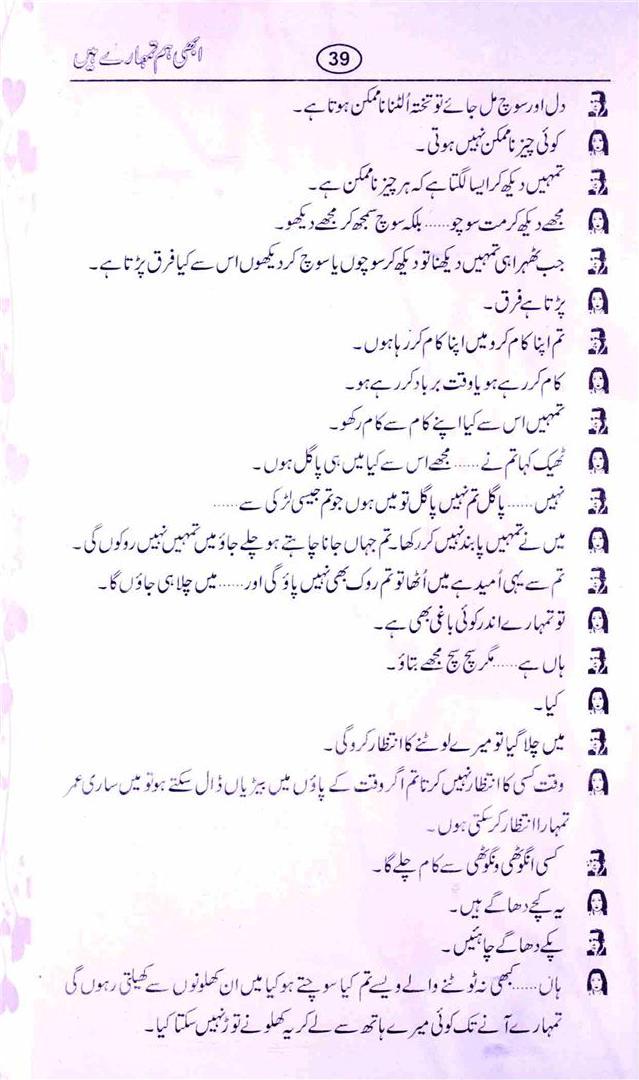 ابھی ہم تمہارے ہیں
39
دل اور سوچ مل جائے تو تختہ اُلٹنا ناممکن ہوتا ہے۔
کوئی چیز ناممکن نہیں ہوتی۔
تمہیں دیکھ کر ایسا لگتا ہے کہ ہر چیز ناممکن ہے۔
مجھے دیکھ کر مت سوچو...... بلکہ سوچ سمجھ کر مجھے دیکھو۔
جب ٹھہرا ہی تمہیں دیکھنا تو دیکھ کر سوچوں یا سوچ کر دیکھوں اس سے کیا فرق پڑتا ہے۔
پڑتا ہے فرق۔
تم اپنا کام کرو میں اپنا کام کر رہا ہوں۔
کام کر رہے ہو یا وقت برباد کر رہے ہو۔
تمہیں اس سے کیا اپنے کام سے کام رکھو۔
ٹھیک کہا تم نے...... مجھے اس سے کیا میں ہی پاگل ہوں۔
نہیں...... پاگل تم نہیں پاگل تو میں ہوں جو تم جیسی لڑکی سے......
میں نے تمہیں پابند نہیں کر رکھا۔ تم جہاں جانا چاہتے ہو چلے جاؤ میں تمہیں نہیں روکوں گی۔
تم سے یہی اُمید ہے میں اُٹھا تو تم روک بھی نہیں پاؤ گی اور...... میں چلا ہی جاؤں گا۔
تو تمہارے اندر کوئی باغی بھی ہے۔
ہاں ہے...... مگر سچ سچ مجھے بتاؤ۔
کیا۔
میں چلا گیا تو میرے لوٹنے کا انتظار کرو گی۔
وقت کسی کا انتظار نہیں کرتا تم اگر وقت کے پاؤں میں بیڑیاں ڈال سکتے ہو تو میں ساری عمر
تمہارا انتظار کر سکتی ہوں۔
کسی انگوٹھی ونگوٹھی سے کام چلے گا۔
یہ کچے دھاگے ہیں۔
پکے دھاگے چاہئیں۔
ہاں...... کبھی نہ ٹوٹنے والے ویسے تم کیا سوچتے ہو کیا میں ان کھلونوں سے کھیلتی رہوں گی
تمہارے آنے تک کوئی میرے ہاتھ سے لے کر یہ کھلونے توڑ نہیں سکتا کیا۔